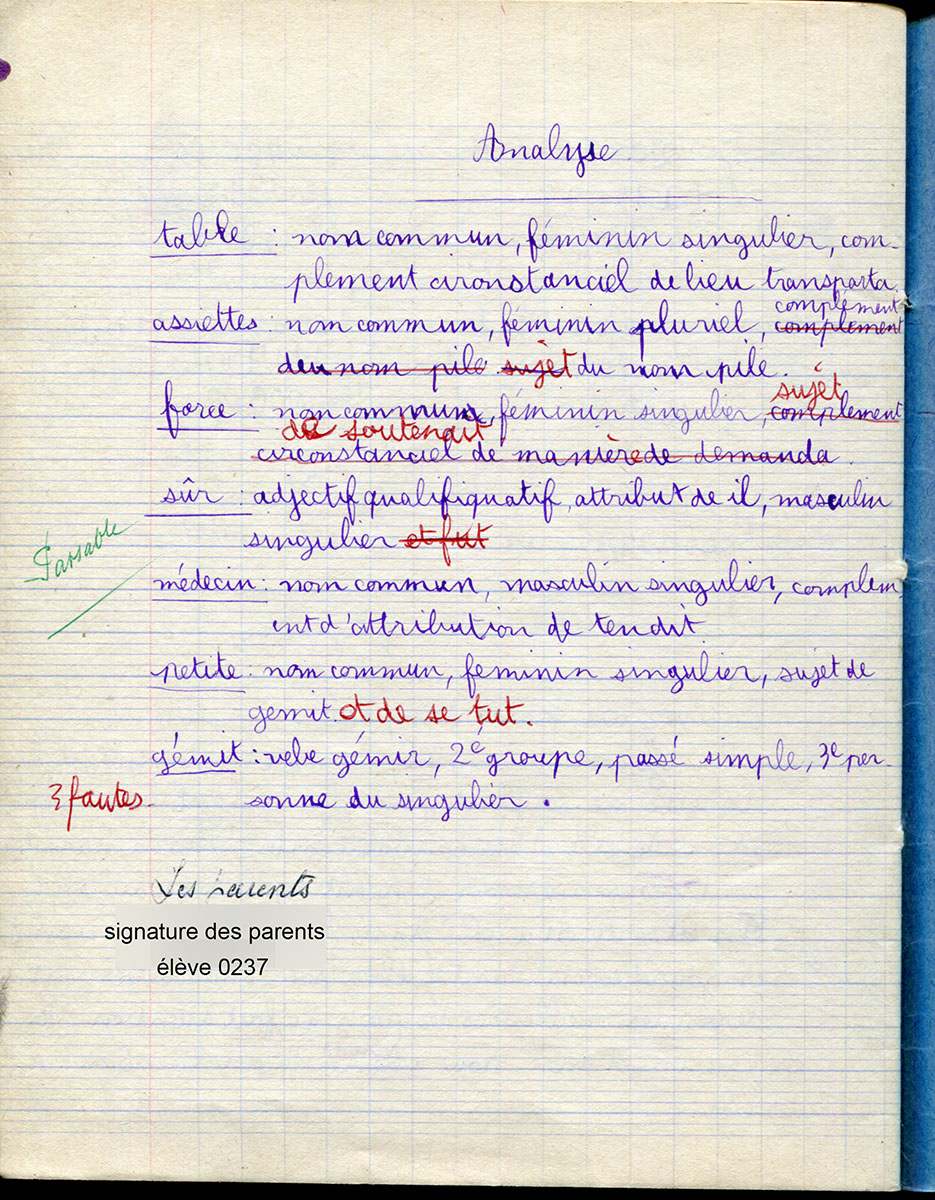 Analyse
table : nom commun, féminin singulier, com-
plement cironstanciel de lieu transporta.
complément
assiettes : nom commun, féminin pluriel, complement
du nom pile sujet du nom pile.
sujet
force : nom commun, féminin singulier, complement
de soutenait
circonstanciel de manière de demanda.
sûr : adjectif qualifiquatif, attribut de il, masculin
singulier et fut
Passable
médecin : nom commun, masculin singulier, complem-
ent d'attribution de tendit
petite : nom commun, feminin singulier, sujet de
gemit. et de se tut.
gémit : vebe gémir, 2e groupe, passé simple, 3e per-
3 fautes.
sonne du singulier.
Les Parents
signature des parents
élève 0237